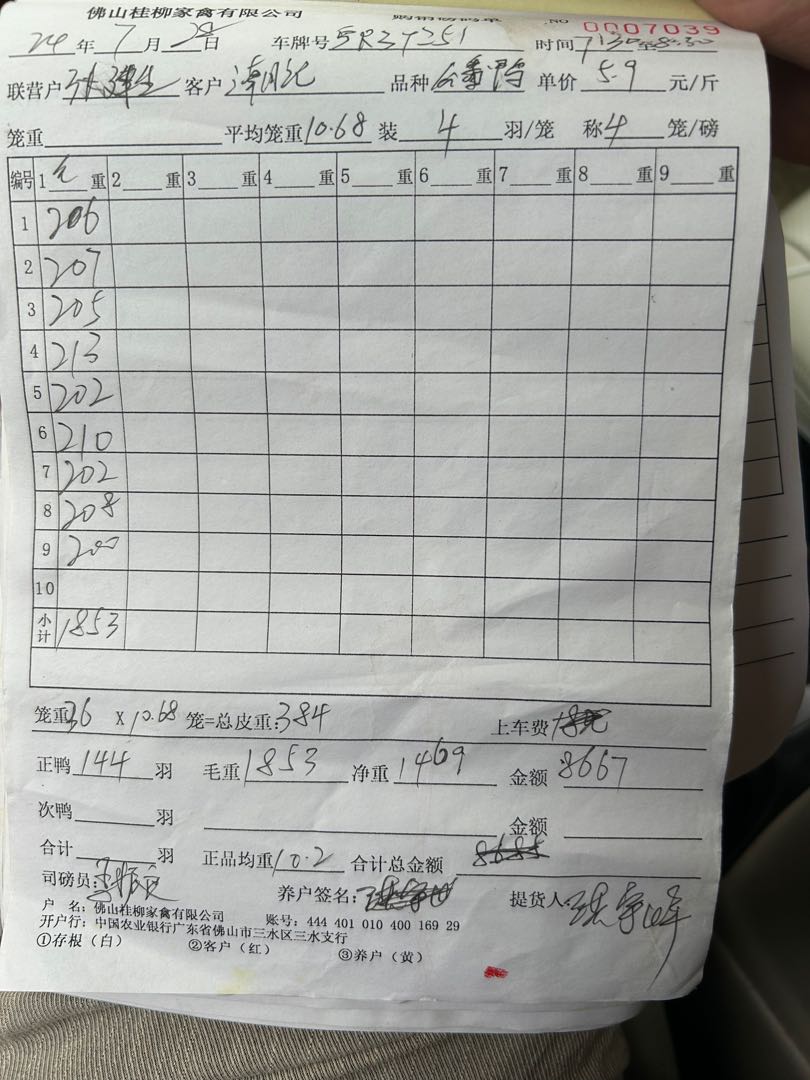 佛山桂柳家禽有限公司 购销磅码单 NO 0007039
24年7月28日 车牌号 时间7:30至8:30
联营户 客户 品种 单价5.9元/斤
笼重 平均笼重10.68 装4羽/笼 称4笼/磅
编号 1 毛重 2 重 3 重 4 重 5 重 6 重 7 重 8 重 9 重
1 206
2 207
3 205
4 213
5 202
6 210
7 202
8 208
9 200
10
小计 1853
笼重36 x 10.68 笼=总皮重:384 上车费
正鸭144羽 毛重1853 净重1469 金额8667
次鸭 羽 金额
合计 羽 正品均重10.2 合计总金额 8685
司磅员: 养户签名: 提货人:
户 名: 佛山桂柳家禽有限公司 账号: 444 401 010 400 169 29
开户行: 中国农业银行广东省佛山市三水区三水支行
①存根(白) ②客户(红) ③养户(黄)